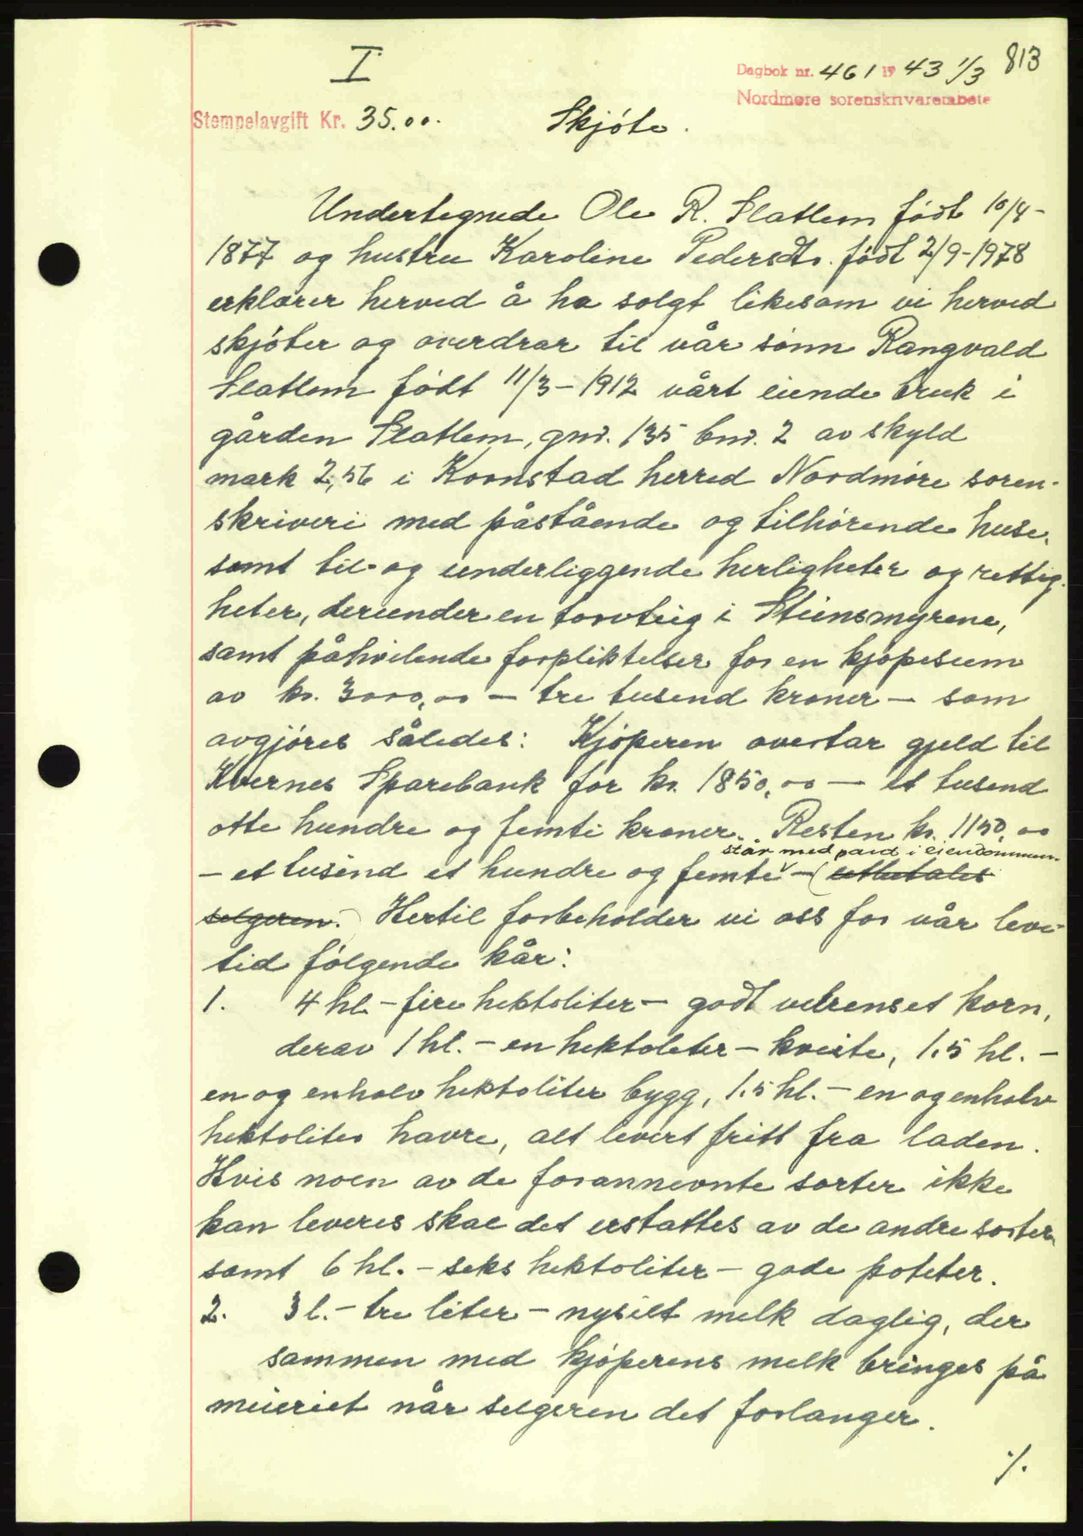 I
813
Dagbok nr. 461 1943 1/3
Nordmøre sorenskriverembete
Stempelavgift Kr. 35.00.
Skjøte.
Undertegnede Ole R. Slatlem født 10/4-
1877 og hustru Karoline Pedersdtr. født 2/9-1978
erklærer herved å ha solgt likesom vi herved
skjøter og overdrar til vår sønn Rangvald
Slatlem født 11/3-1912 vårt eiende bruk i
gården Slatlem, gnr. 135 bnr. 2 av skyld
mark 2,56 i Kornstad herred Nordmøre soren-
skriveri med påstående og tilhørende huse,
samt til og underliggende herligheter og rettig-
heter, derunder en torvteig i Steinsmyrene,
samt påhvilende forpliktelser for en kjøpesum
av kr. 3000,00 - tre tusend kroner - som
avgjøres således: Kjøperen overtar gjeld til
Kvernes Sparebank for kr. 1850,00 - et tusend
otte hundre og femti kroner. Resten kr. 1150,00
står med pant i eiendommen.
- et tusend et hundre og femti - (utbetales
selgeren.) Hertil forbeholder vi oss for vår leve-
tid følgende kår:
1. 4 hl. - fire hektoliter - godt velrenset korn,
derav 1 hl. - en hektoliter - hveite, 1.5 hl. -
en og enhalv hektoliter bygg, 1.5 hl. - en og enhalv
hektoliter havre, alt levert fritt fra laden.
Hvis noen av de forannevnte sorter ikke
kan leveres skal det erstattes av de andre sorter
samt 6 hl. - seks hektoliter - gode poteter.
2. 3 l. - tre liter - nysilt melk daglig, der
sammen med kjøperens melk bringes på
meieriet når selgeren det forlanger.
./.